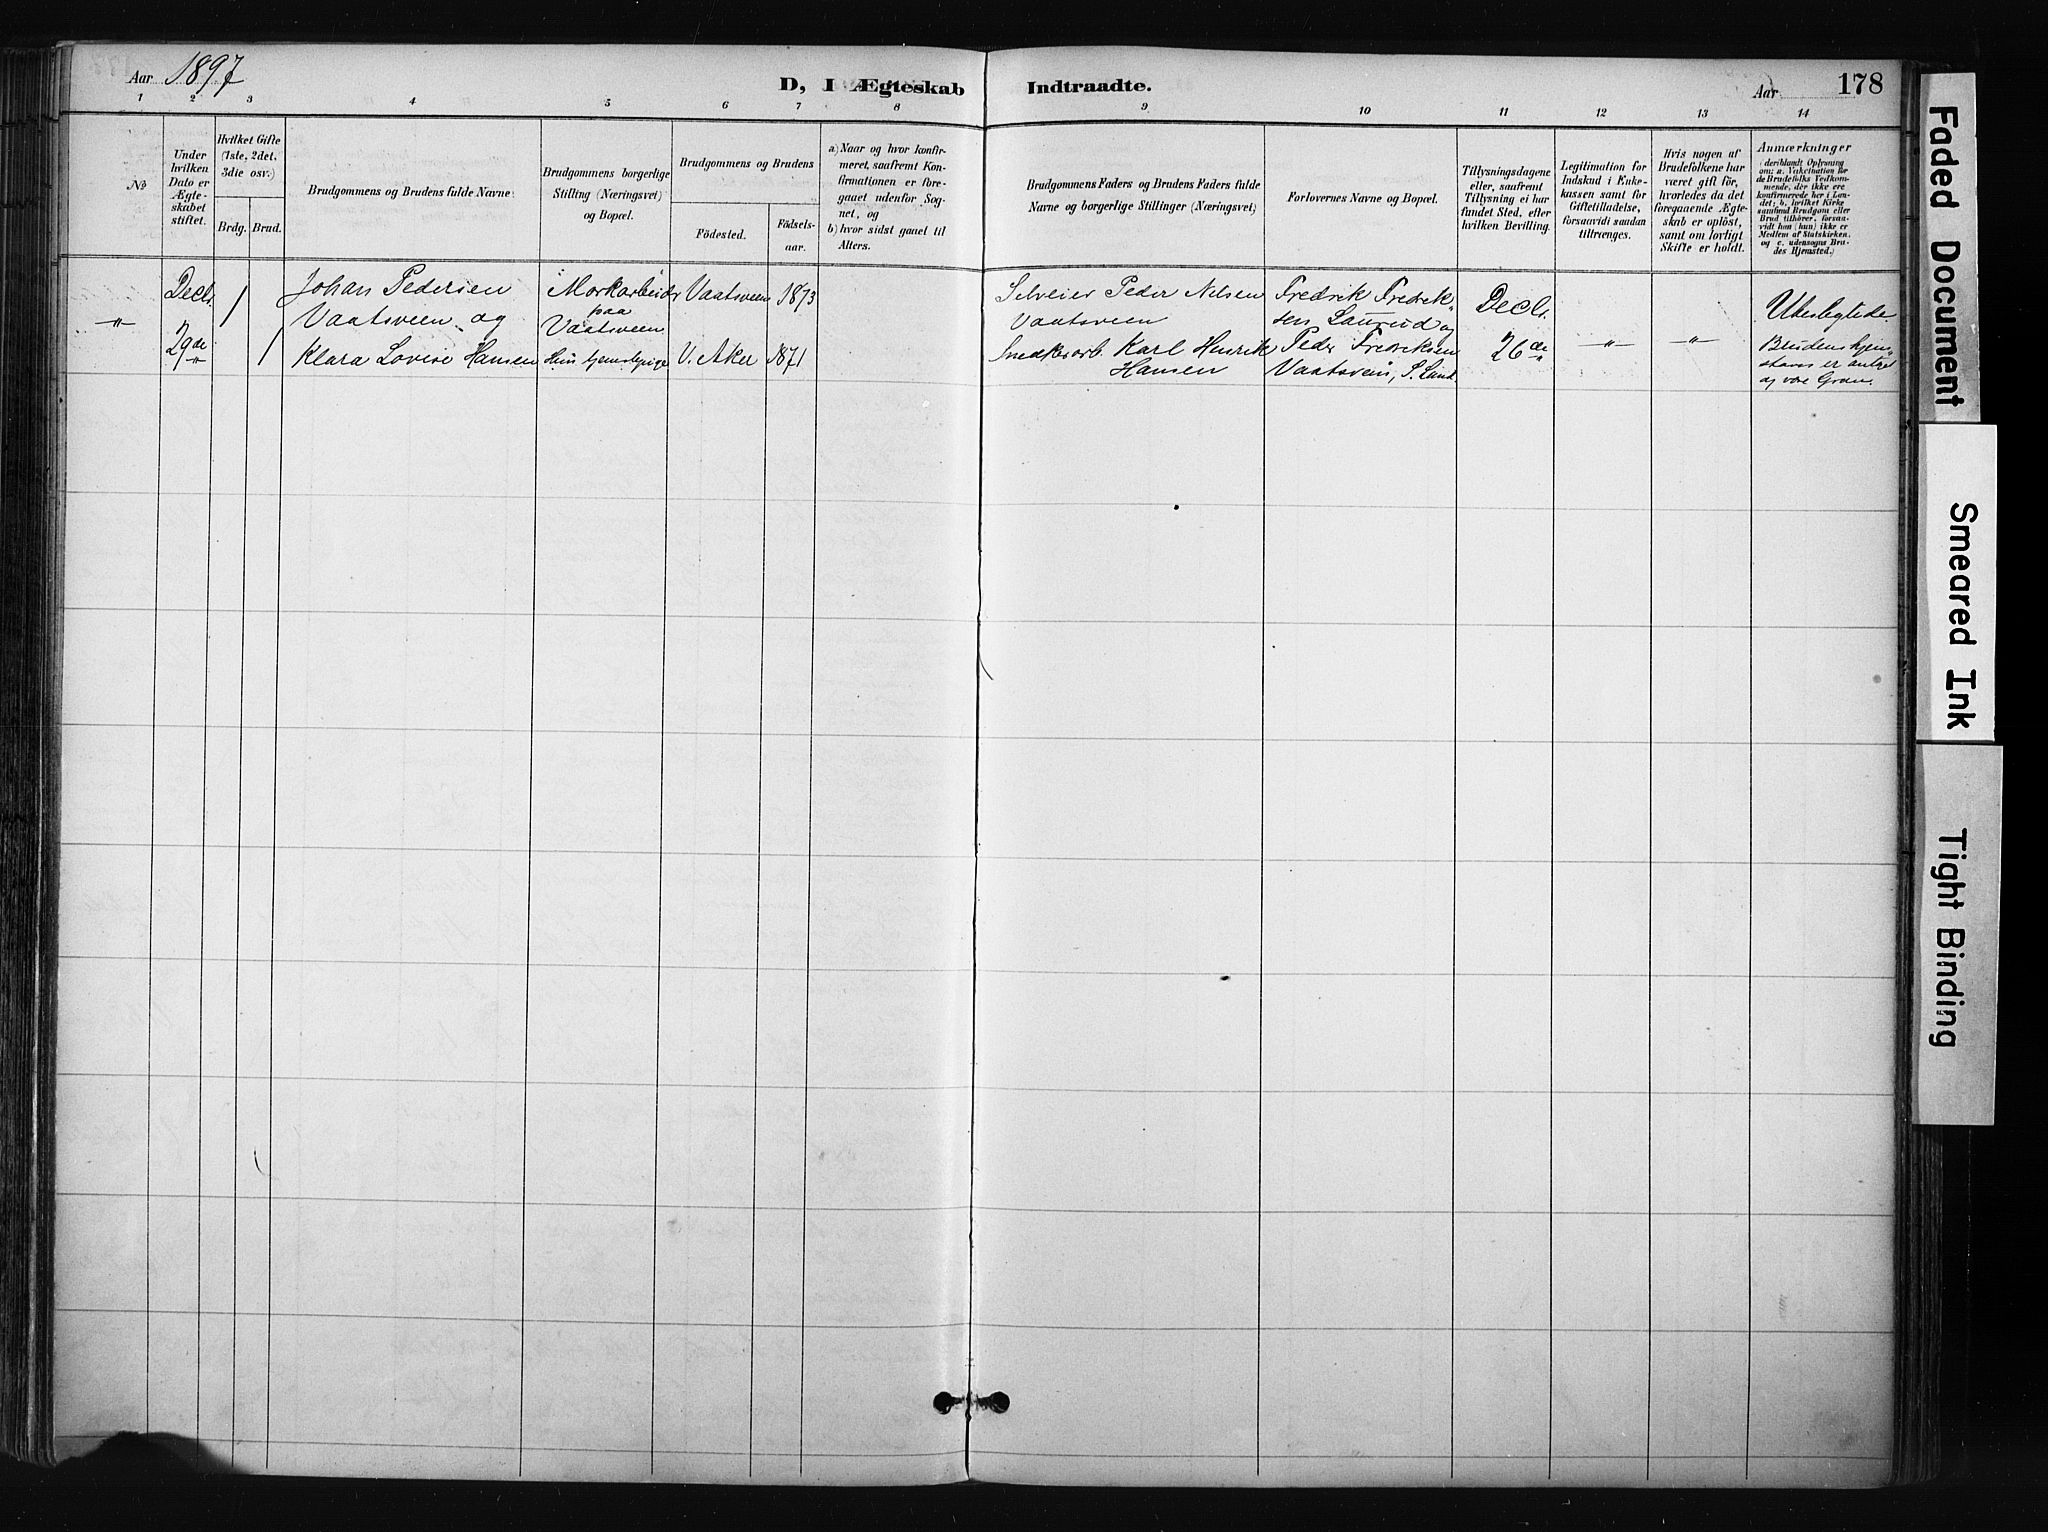 Aar 1897
D, I Ægteskab
Indtraadte.
Aar
178
1 2 3 4 5 6 7 8 9 10 11 12 13 14
№
Under
hvilken
Dato er
Ægte-
skabet
stiftet.
Hvilket Gifte
(1ste, 2det,
3die osv.)
Brdg. Brud.
Brudgommens og Brudens fulde Navne.
Brudgommens borgerlige
Stilling (Næringsvei)
og Bopæl.
Brudgommens og Brudens
Födested.
Födsels-
aar.
a) Naar og hvor konfir-
meret, saafremt Kon-
firmationen er fore-
gaaet udenfor Sog-
net, og
b) hvor sidst gaaet til
Alters.
Brudgommens Faders og Brudens Faders fulde
Navne og borgerlige Stillinger (Næringsvei)
Forlovernes Navne og Bopæl.
Tillysningsdagene
eller, saafremt
Tillysning ei har
fundet Sted, efter
hvilken Bevilling.
Legitimation for
Indskud i Enke-
kassen samt for
Giftetilladelse,
forsaavidt saadan
tiltrænges.
Hvis nogen af
Brudefolkene har
været gift för,
hvorledes da det
foregaaende Ægte-
skab er oplöst,
samt om lovligt
Skifte er holdt.
Anmærkninger
(deriblandt Oplysning
om: a. Vakcination for
de Brudefolks Vedkom-
mende, der ikke ere
konfirmerede her i Lan-
det; b. hvilket Kirke-
samfund Brudgom eller
Brud tilhörer, forsaa-
vidt han (hun) ikke er
Medlem af Statskirken,
og c. udensogns Bru-
des Hjemsted.)
Decbr.
29de
1
1
Johan Pedersen
Vaatsveen og
Klara Lovise Hansen
Markarbeider
paa
Vaatsveen
Vaatsveen 1873
V. Aker 1871
Selveier Peder Nilsen
Vaatsveen
Snedkerarb. Karl Henrik
Hansen
Fredrik Fredrik
sen Laurud og
Peder Fredriksen
Vaatsveen, S. Land.
Decbr.
26de
Ubeslegtede.
Brudens hjem
og
Faded Document
Smeared Ink
Tight Binding